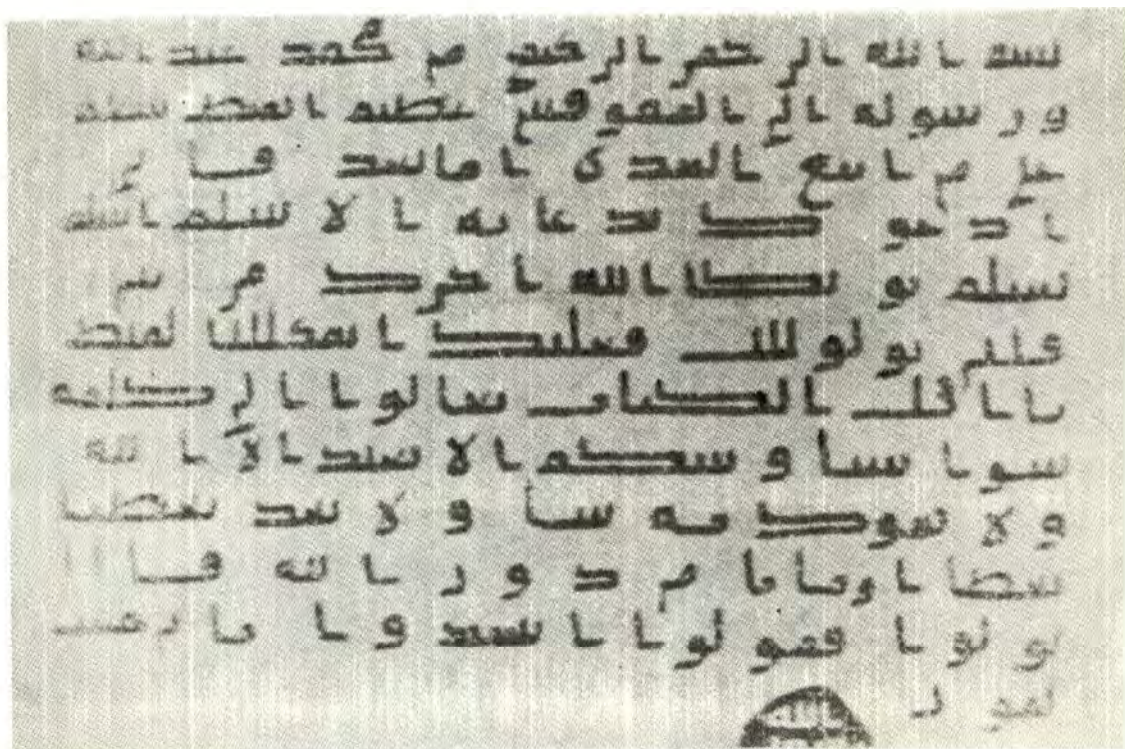 بسم الله الرحمن الرحيم من محمد عبد الله
ورسوله الى المقوقس عظيم القبط سلم
على من اتبع الهدى اما بعد فانى
ادعوك بدعاية الاسلم اسلم
تسلم يوتك الله اجرك مرتين
فان توليت فعليك القبط
يا اهل الكتاب تعالوا الى كلمة
سوا بيننا وبينكم الا نعبد الا الله
ولا نشرك به شيا ولا يتخذ بعضنا
بعضا اربابا من دون الله فان
تولوا فقولوا اشهدوا بانا مس
لمون
الله